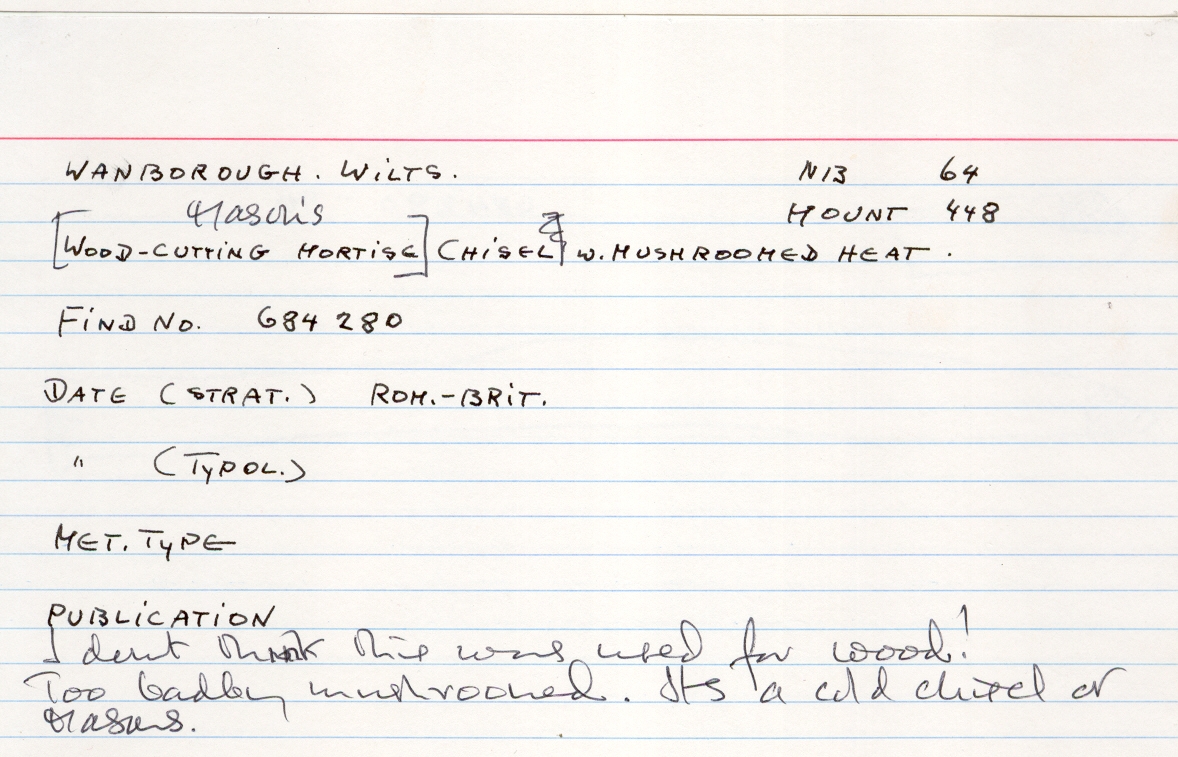 WANBOROUGH. WILTS. NIB 64
Mason's MOUNT 448
[WOOD-CUTTING MORTISE] CHISEL] W. MUSHROOMED HEAT.
FIND NO. 684 280
DATE (STRAT.) ROM.-BRIT.
" (TYPOL.)
MET. TYPE
PUBLICATION
I dont think this was used for wood!
Too badly mushroomed. Its a cold chisel or
Masons.